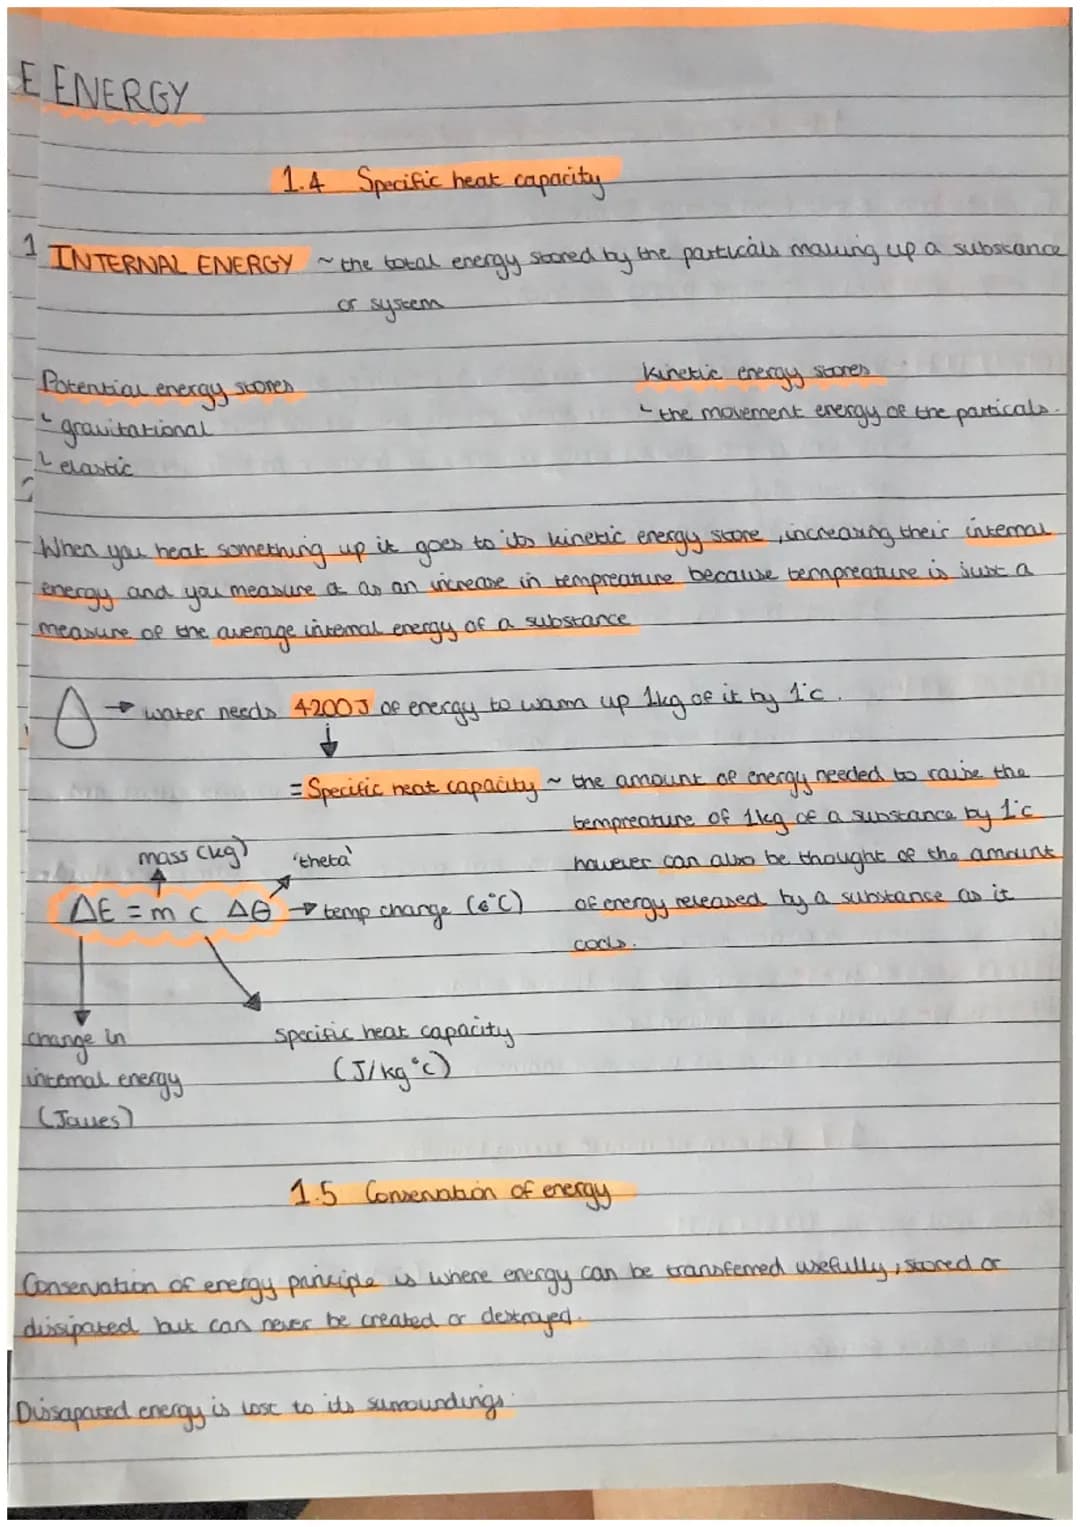 E ENERGY
1.4 Specific heat capacity
1 INTERNAL ENERGY ~ the total energy stored by the particals making up a substance
or system
Potential energy stores
gravitational
elastic
Kinetic energy stores
the movement energy of the particals.
When you heat something up it goes to its kinetic energy store, increasing their internal
energy and you measure it as an increase in tempreature because tempreature is just a
measure of the average internal energy of a substance
→ water needs 4200J of energy to warm up 1kg of it by 1°c.
= Specific heat capacity ~ the amount of energy needed to raise the
tempreature of 1kg of a substance by 1°c
however can also be thought of the amount
of energy released by a substance as it
cools.
mass (kg)
'theta'
ΔE = m c Δθ → temp change (°C)
change in
internal energy
(Joules)
specific heat capacity
(J/kg°c)
1.5 Conservation of energy
Conservation of energy principle is where energy can be transferred usefully, stored or
dissipated but can never be created or destroyed.
Dissapated energy is lost to its surroundings.